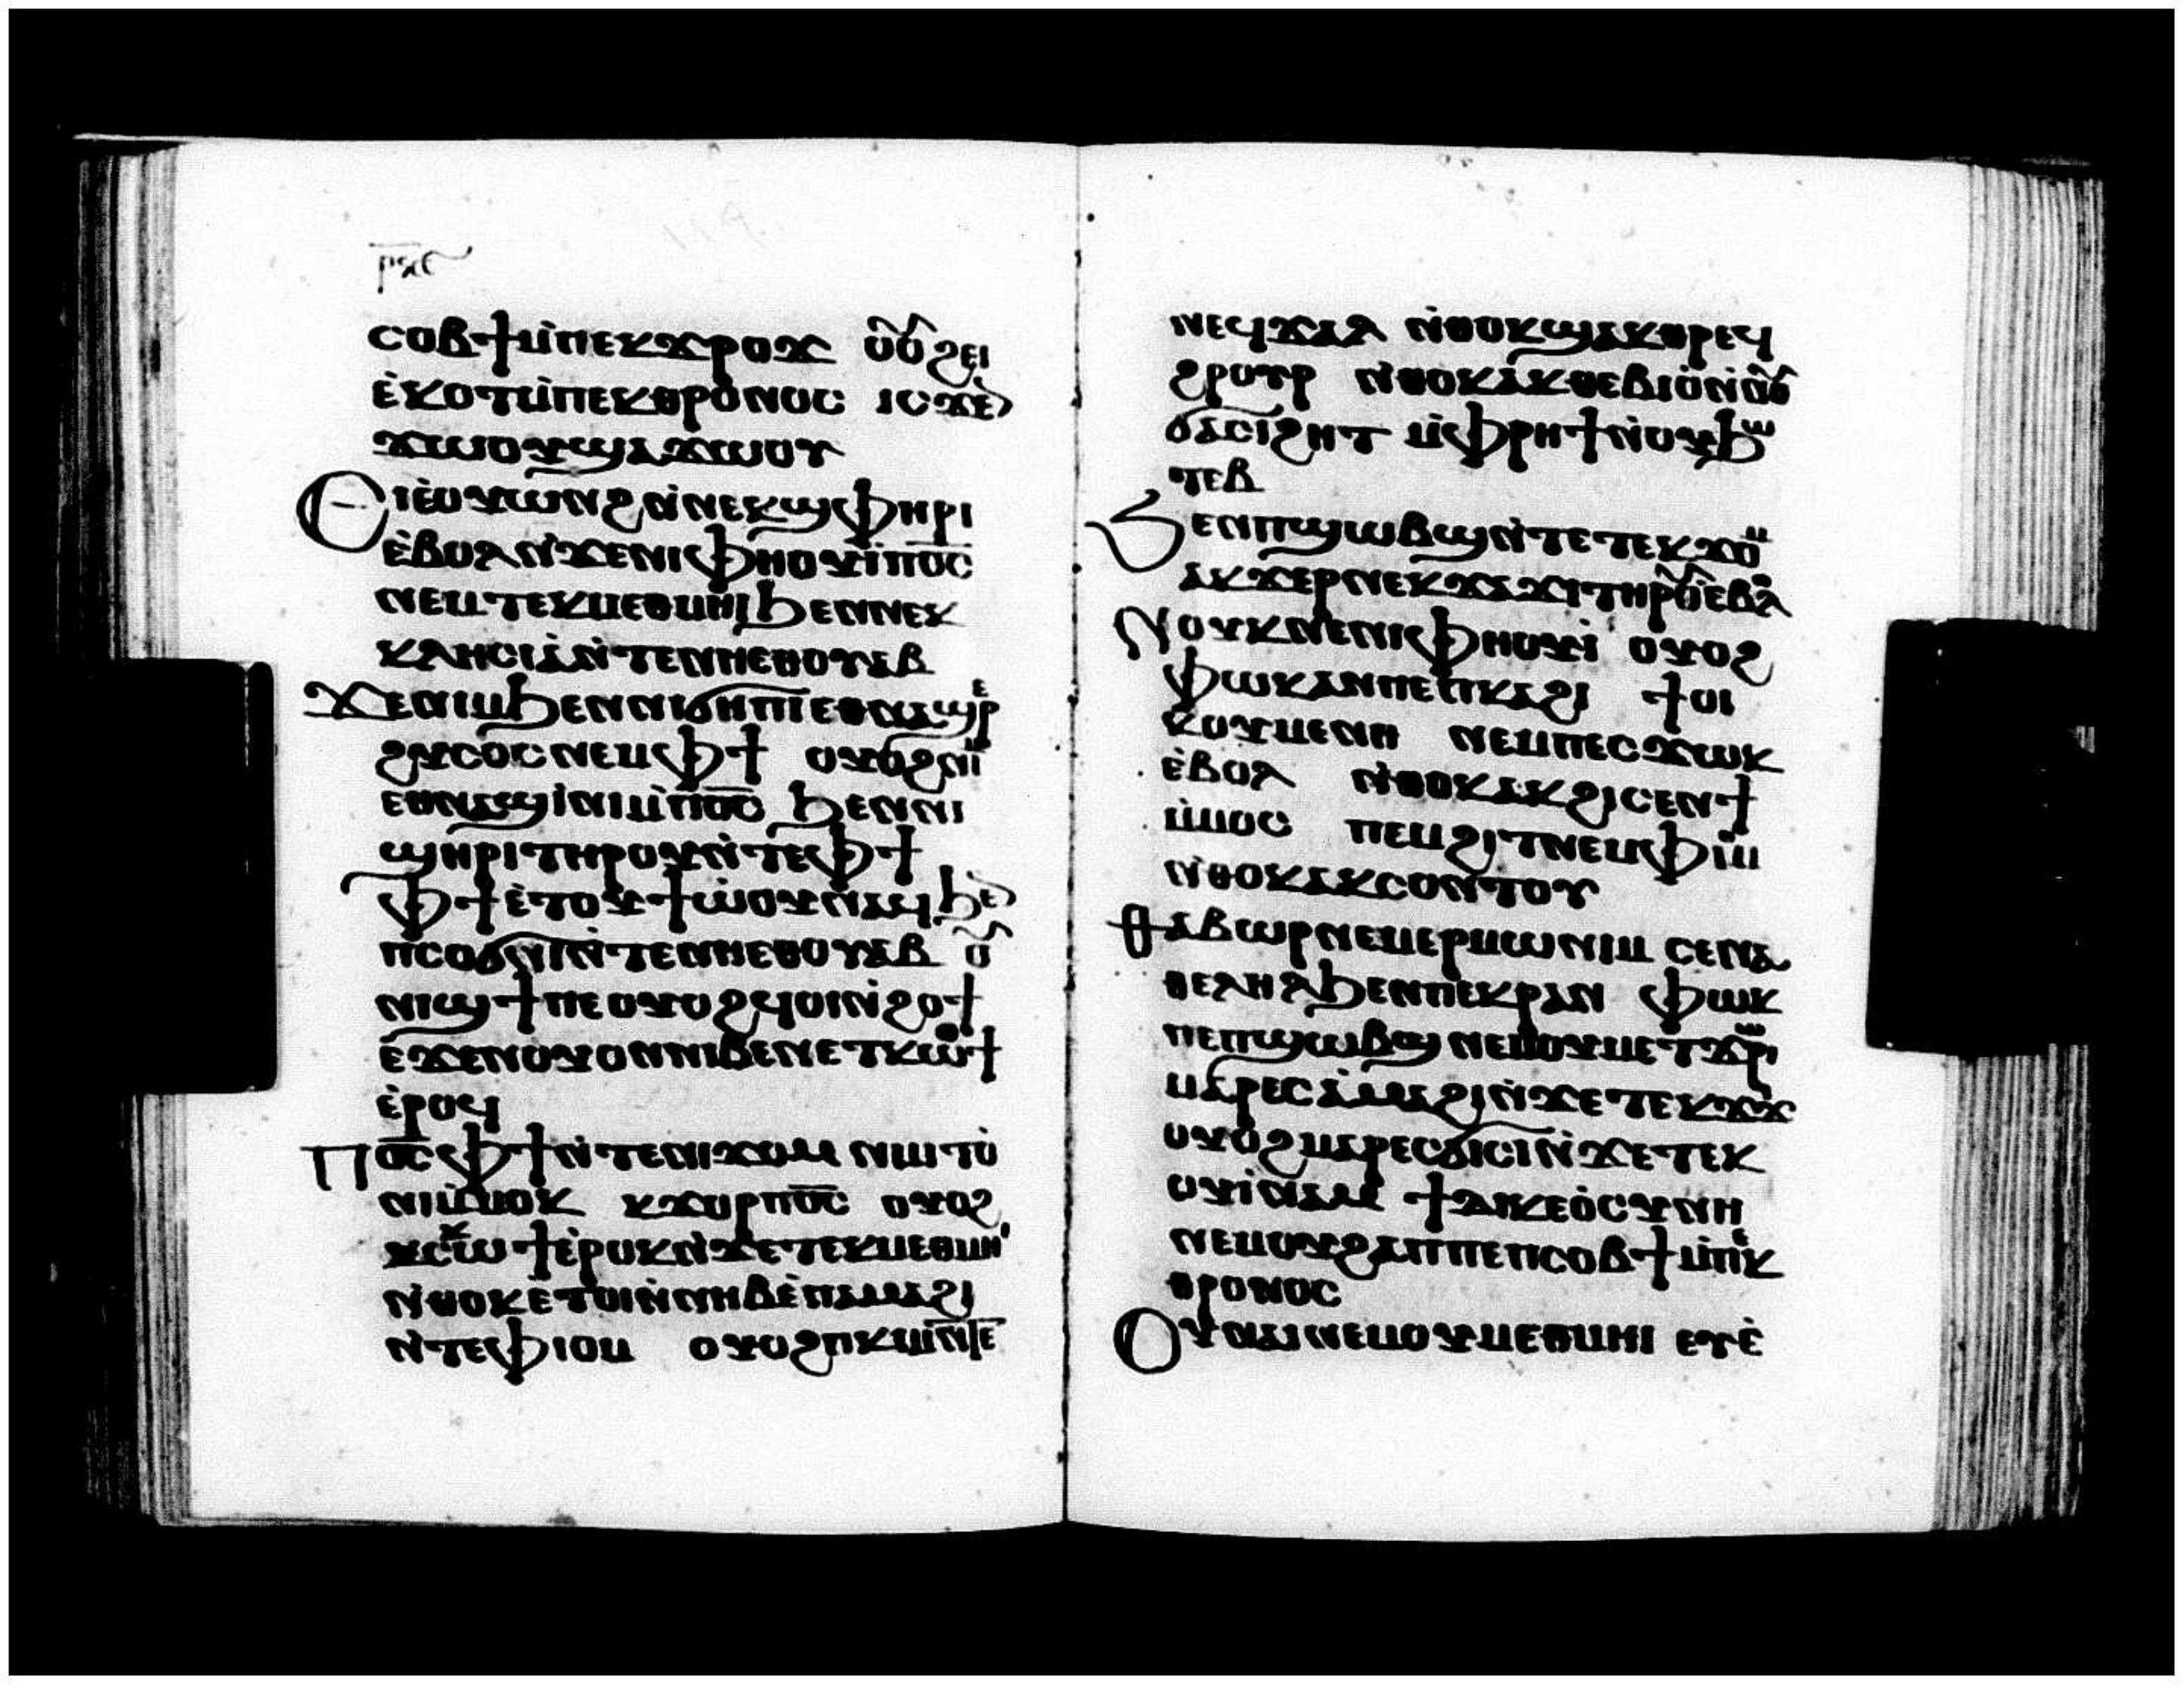 ⲣϥⲉ
ⲥⲟⲃϯⲙ̀ⲡⲉⲕϫⲣⲟϫ ⲟⲩⲟϩ ⲉⲓ
ⲉ̀ⲕⲟⲧⲙ̀ⲡⲉⲕⲑⲣⲟⲛⲟⲥ ⲓⲥϫⲉ
ϫⲱⲟⲩϣⲁϫⲱⲟⲩ
Ⲉⲓⲉ̀ⲟⲩⲱⲛϩⲛ̀ⲛⲉⲕϣⲫⲏⲣⲓ
ⲉ̀ⲃⲟⲗⲛ̀ϫⲉⲛⲓⲫⲏⲟⲩⲓ̀ⲡⲟ̅ⲥ̅
ⲛⲉⲙⲧⲉⲕⲙⲉⲑⲙⲏⲓϧⲉⲛⲛⲉⲕ
ⲕⲗⲏⲥⲓⲁ̀ⲛ̀ⲧⲉⲛⲏⲉⲑⲟⲩⲁⲃ
Ϫⲉⲛⲓⲙϧⲉⲛⲛⲓϭⲏⲡⲓⲉⲑⲛⲁϣⲣ̀ⲉ
ϩⲩⲥⲟⲥⲛⲉⲙⲫϯ ⲟⲩⲟϩⲛⲓⲙ
ⲉⲑⲛⲁϣⲓ̀ⲛⲓⲙ̀ⲡⲟ̅ⲥ̅ ϧⲉⲛⲛⲓ
ϣⲏⲣⲓⲧⲏⲣⲟⲩⲛ̀ⲧⲉⲫϯ
Ⲫϯⲉ̀ⲧⲟⲩϯⲱ̀ⲟⲩⲛⲁϥϧⲉ
ⲡⲥⲟϭⲛⲓⲛ̀ⲧⲉⲛⲏⲉⲑⲟⲩⲁⲃ ⲟⲩ
ⲛⲓϣϯⲡⲉ ⲟⲩⲟϩϥⲟⲓⲛ̀ϩⲟϯ
ⲉϫⲉⲛⲟⲩⲟⲛⲛⲓⲃⲉⲛⲉⲧⲕⲱϯ
ⲉ̀ⲣⲟϥ
Ⲡⲟ̅ⲥ̅ⲫϯⲛ̀ⲧⲉⲛⲓϫⲟⲙ ⲛⲓⲙⲧⲟ
ⲛⲓⲙ̀ⲙⲟⲕ ⲕϫⲟⲣⲡⲟ̅ⲥ̅ ⲟⲩⲟϩ
ⲩⲥⲕⲱϯⲉ̀ⲣⲟⲕⲛ̀ϫⲉⲧⲉⲕⲙⲉⲑⲙⲏⲓ
ⲛ̀ⲑⲟⲕⲉ̀ⲧⲟⲓⲛ̀ⲛⲏⲃⲉ̀ⲡⲁⲙⲁϩⲓ
ⲛ̀ⲧⲉⲫⲓⲟⲙ ⲟⲩⲟϩⲡⲕⲓⲙⲛ̀ⲧⲉ
ⲛⲉϥϫⲁⲗ ⲛ̀ⲑⲟⲕϣⲁⲕⲑⲣⲉϥ
ϩⲣⲟⲩⲣ ⲛ̀ⲑⲟⲕⲁⲕⲑⲉⲃⲓⲟ̀ⲛ̀ⲟⲩ
ϭⲁⲥⲓϩⲏⲧ ⲙ̀ⲫⲣⲏϯⲛ̀ⲟⲩϧⲱ
ⲧⲉⲃ
Ϧⲉⲛⲡϣⲱⲃϣⲛ̀ⲧⲉⲧⲉⲕϫⲟⲙ
ⲁⲕϫⲉⲣⲛⲉⲕϫⲁϫⲓⲧⲏⲣⲟⲩⲉ̀ⲃⲟⲗ
Ⲛⲟⲩⲕⲛⲉⲛⲓⲫⲏⲟⲩⲓ̀ ⲟⲩⲟϩ
ⲫⲱⲕⲁⲛⲡⲉⲡⲕⲁϩⲓ ϯⲟⲓ
ⲕⲟⲩⲙⲉⲛⲏ ⲛⲉⲙⲡⲉⲥϫⲱⲕ
ⲉ̀ⲃⲟⲗ ⲛ̀ⲑⲟⲕⲁⲕϩⲓⲥⲉⲛϯ
ⲙ̀ⲙⲟⲥ ⲡⲉⲙϩⲓⲧⲛⲉⲙⲫⲓⲟⲙ
ⲛ̀ⲑⲟⲕⲁⲕⲥⲟⲛⲧⲟⲩ
Ⲑⲁⲃⲱⲣⲛⲉⲙⲉⲣⲙⲱⲛⲓⲙ ⲥⲉⲛⲁ
ⲑⲉⲗⲏⲗϧⲉⲛⲡⲉⲕⲣⲁⲛ ⲫⲱⲕ
ⲡⲉⲡϣⲱⲃϣ ⲛⲉⲙⲟⲩⲙⲉⲧϫⲱⲣⲓ
ⲙⲁⲣⲉⲥⲁ̀ⲙⲁϩⲓⲛ̀ϫⲉⲧⲉⲕϫⲓϫ
ⲟⲩⲟϩⲙⲁⲣⲉⲥϭⲓⲥⲓⲛ̀ϫⲉⲧⲉⲕ
ⲟⲩⲓ̀ⲛⲁⲙ ϯⲇⲓⲕⲉⲟ̀ⲥⲩⲛⲏ
ⲛⲉⲙⲟⲩϩⲁⲡⲡⲉⲡⲥⲟⲃϯⲙ̀ⲡⲉⲕ
ⲑⲣⲟⲛⲟⲥ
Ⲟⲩⲛⲁⲓⲛⲉⲙⲟⲩⲙⲉⲑⲙⲏⲓ ⲉⲩⲉ̀